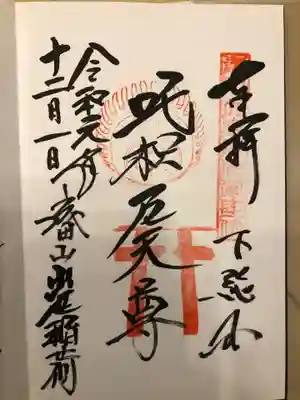 奉拝
下総
吒枳尼天尊
令和元年
十二月一日
成田山出世稲荷